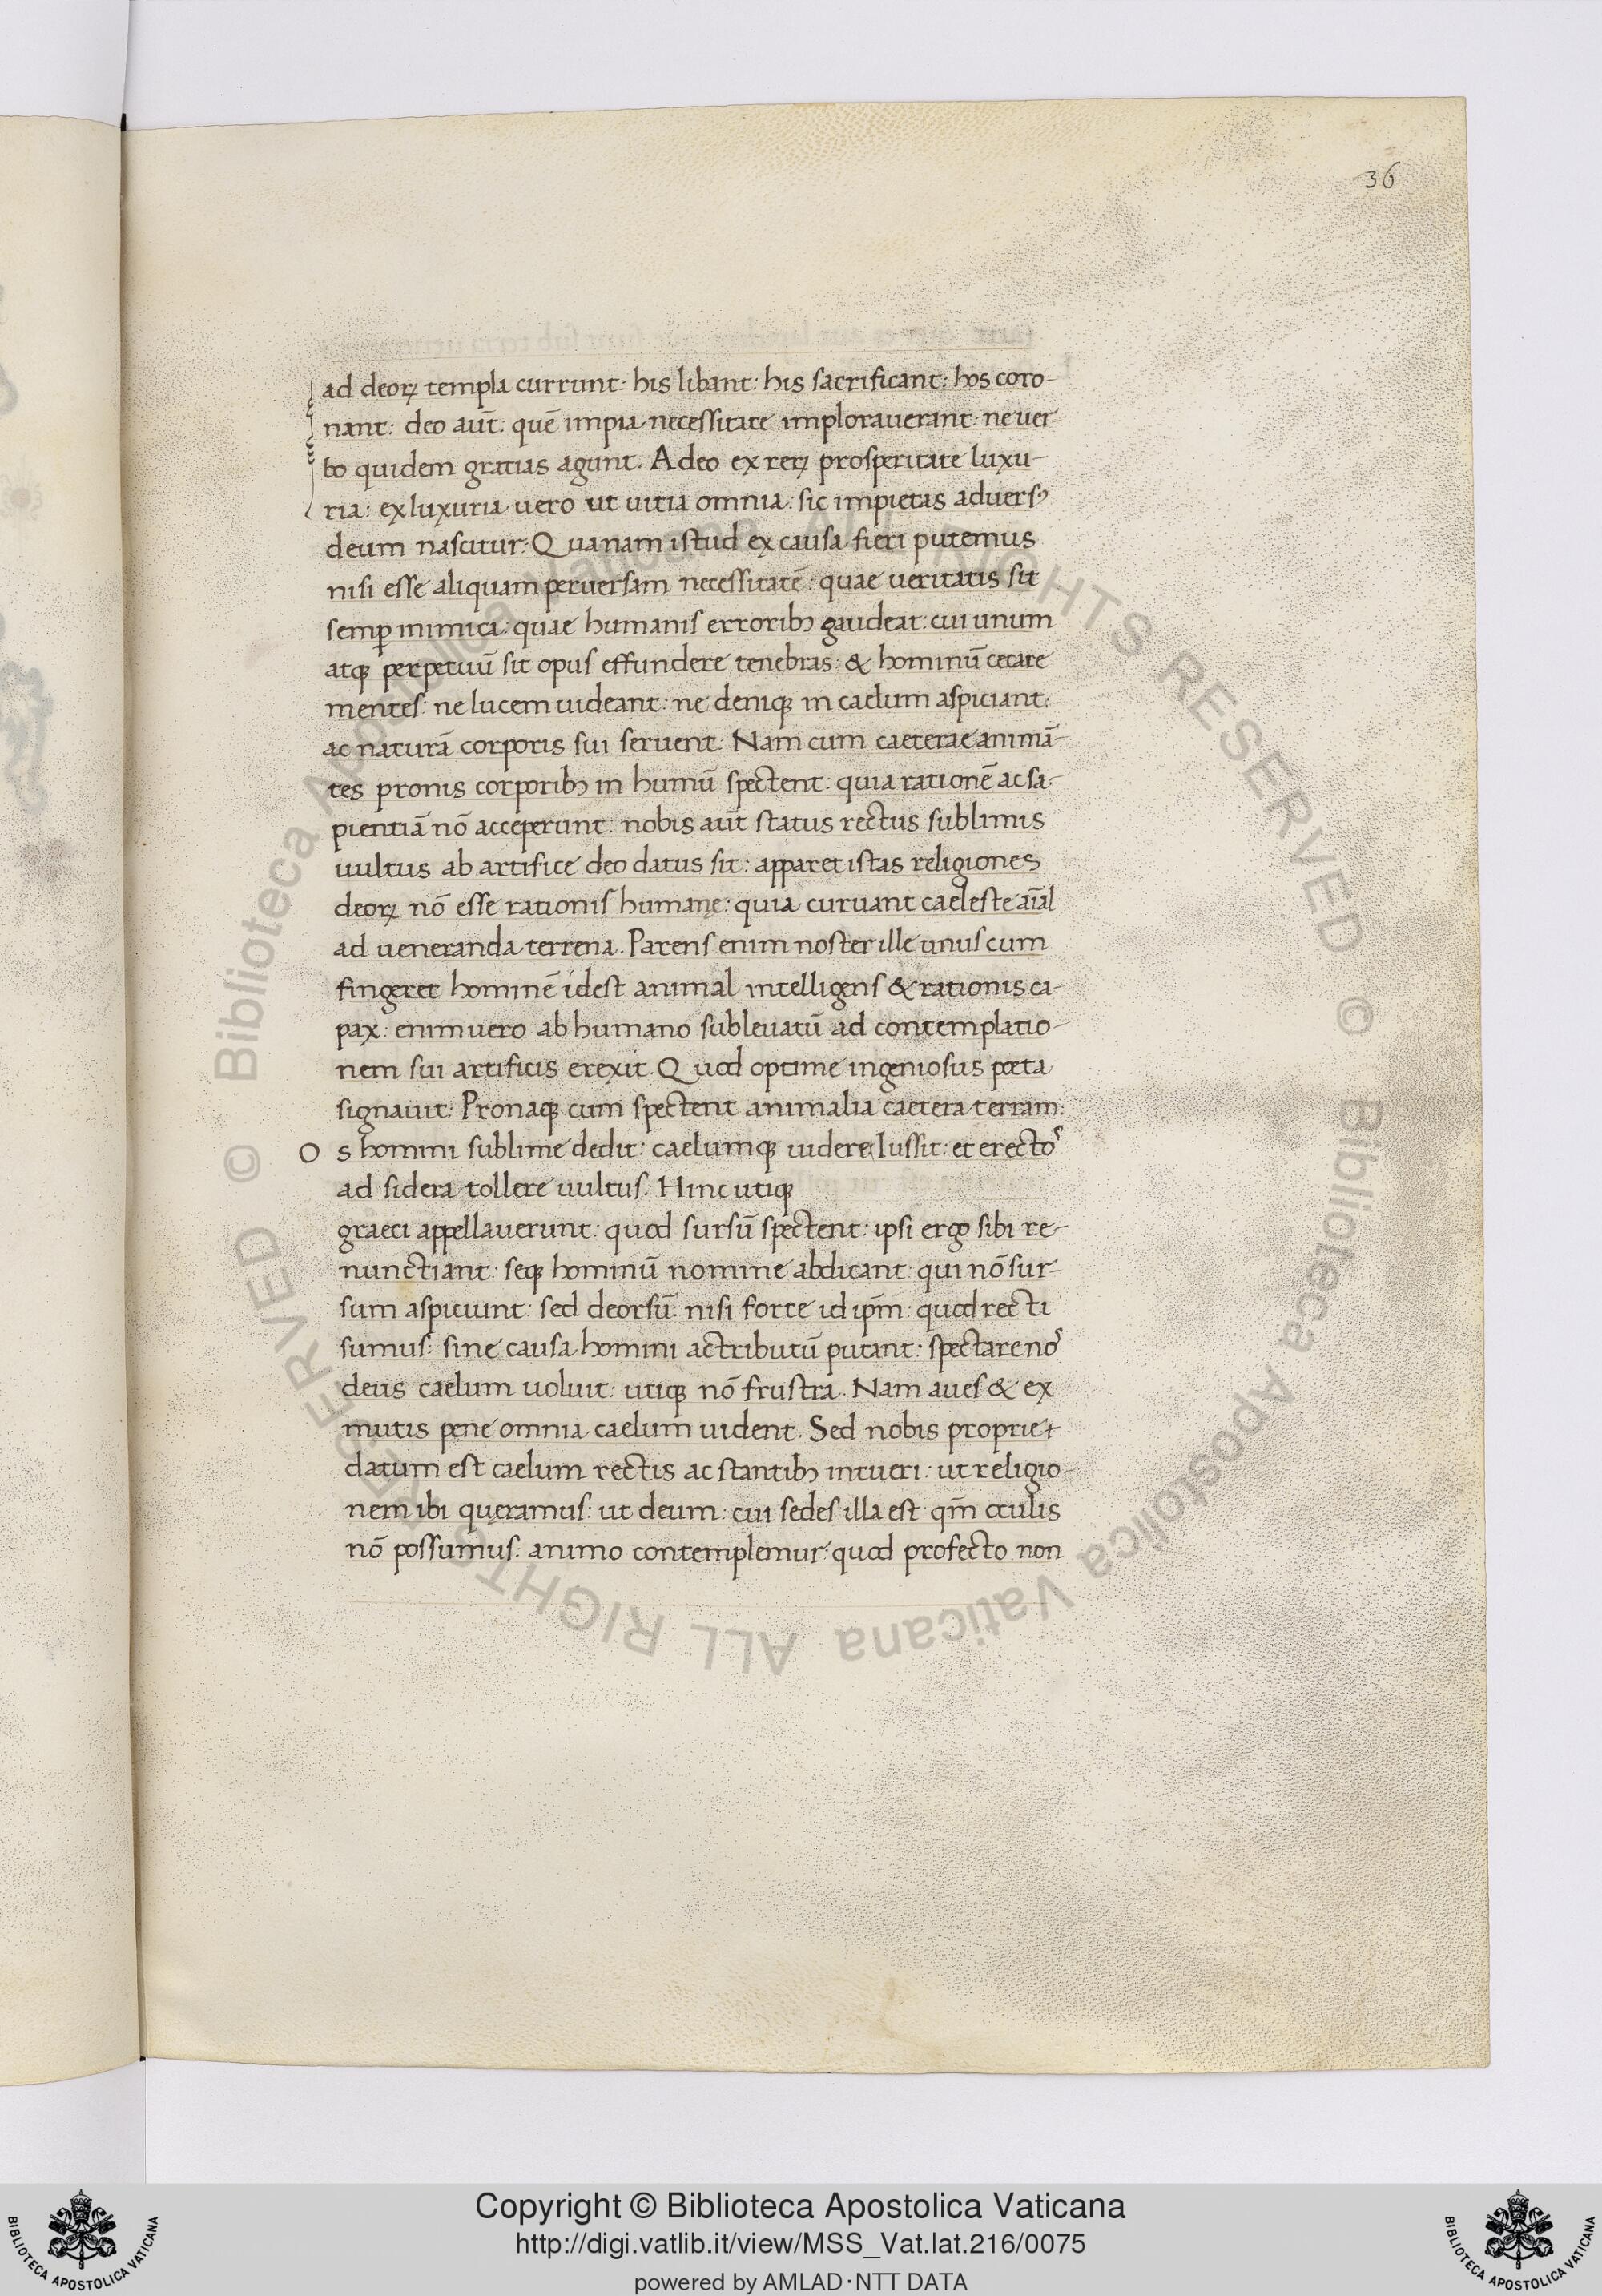 36
ad deoꝝ templa currunt: his libant: his sacrificant: hos coro-
nant: deo aut̄: quē impia necessitate implorauerant: ne uer-
bo quidem gratias agunt. Adeo ex reꝝ prosperitate luxu-
ria: ex luxuria uero ut uitia omnia: sic impietas aduersꝰ
deum nascitur: Quanam istud ex causa fieri putemus
nisi esse aliquam peruersam necessitatē: quae ueritatis sit
semꝑ inimica: quae humanis erroribꝫ gaudeat: cui unum
atqꝫ perpetuū sit opus effundere tenebras: & hominū cecare
mentes: ne lucem uideant: ne deniqꝫ in caelum aspiciant:
ac naturā corporis sui seruent: Nam cum caeterae animā-
tes pronis corporibꝫ in humū spectent: quia rationē ac sa-
pientiā nō acceperunt: nobis aut̄ status rectus sublimis
uultus ab artifice deo datus sit: apparet istas religiones
deoꝝ nō esse rationis humanę: quia curuant caeleste aīal
ad ueneranda terrena. Parens enim noster ille unus cum
fingeret hominē idest animal intelligens & rationis ca-
pax: enimuero ab humano subleuatū ad contemplatio-
nem sui artificis erexit. Quod optime ingeniosus poeta
signauit: Pronaqꝫ cum spectent animalia caetera terram:
O s homini sublime dedit: caelumqꝫ uidere Iussit: et erectoˢ
ad sidera tollere uultus. Hinc utiqꝫ
graeci appellauerunt: quod sursū spectent: ipsi ergo sibi re-
nunctiant: seqꝫ hominū nomine abdicant: qui nō sur-
sum aspiciunt: sed deorsū: nisi forte id ip̄m: quod recti
sumus: sine causa homini actributū putant: spectare noˢ
deus caelum uoluit: utiqꝫ nō frustra. Nam aues & ex
mutis pene omnia caelum uident. Sed nobis proprie
datum est caelum rectis ac stantibꝫ intueri: ut religio-
nem ibi quęramus: ut deum: cui sedes illa est: qm̄ oculis
nō possumus: animo contemplemur: quod profecto non
© Biblioteca Apostolica Vaticana ALL RIGHTS RESERVED © Biblioteca Apostolica Vaticana ALL RIGHTS RESERVED
Copyright © Biblioteca Apostolica Vaticana
http://digi.vatlib.it/view/MSS_Vat.lat.216/0075
powered by AMLAD·NTT DATA
BIBLIOTECA APOSTOLICA VATICANA
BIBLIOTECA APOSTOLICA VATICANA